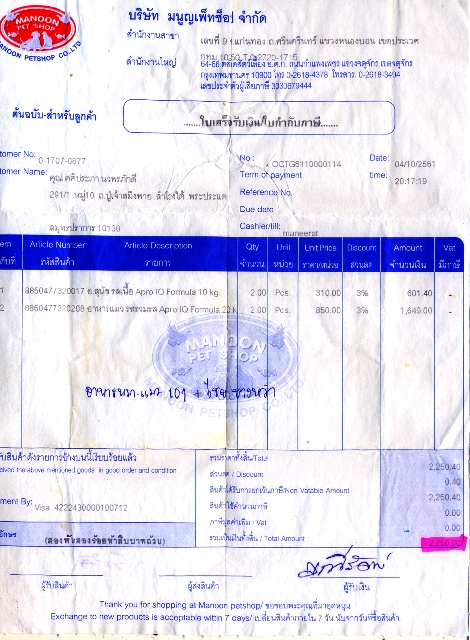 MANOON
PET SHOP
MANOON PETSHOP CO.,LTD
บริษัท มนูญเพ็ทช็อป จำกัด
สำนักงานสาขา เลขที่ 9 ถ.ศรีนครินทร์ แขวงหนองบอน เขตประเวศ
สำนักงานใหญ่
กรุงเทพมหานคร 10900 โทร 0-2618-4378 โทรสาร. 0-2618-3494
เลขประจำตัวผู้เสียภาษี 3030679444
ต้นฉบับ-สำหรับลูกค้า
ใบเสร็จรับเงิน/ใบกำกับภาษี
tomer No: 0-1707-0877
No : OCTG5110000114 Date: 04/10/2551
tomer Name:
Term of payment time: 20:17:19
291/1 หมู่10 ถ.ปู่เจ้าสมิงพราย สำโรงใต้ พระประแดง
Reference No.
Due date
สมุทรปราการ 10130
Cashier/till: maneerat
em Article Number Article Description Qty Unit Unit Price Discount Amount Vat
ลำดับที่ รหัสสินค้า รายการ จำนวน หน่วย ราคา/หน่วย ส่วนลด จำนวนเงิน มีภาษี
1 8850477320017 อ.สุนัขรสเนื้อ Apro IQ Formula 10 kg. 2.00 Pcs. 310.00 3% 601.40
2 8850477320208 อาหารแมว รสรวมรส Apro IQ Formula 20 k 2.00 Pcs. 850.00 3% 1,649.00
MANOON
PET SHOP
MANOON PETSHOP CO.,LTD
รับสินค้าดังรายการข้างบนนี้เรียบร้อยแล้ว
ceived the above mentioned goods in good order and condition
รวมราคาทั้งสิ้น/Total 2,250.40
ส่วนลด / Discount 0.40
สินค้าได้รับการยกเว้นภาษี/Non Vatable Amount 2,250.40
สินค้าใช้คำนวณภาษี 0.00
ภาษีมูลค่าเพิ่ม / Vat 0.00
รวมเป็นเงินทั้งสิ้น / Total Amount 2,250.00
ment By: Visa 4222430000100712
(สองพันสองร้อยห้าสิบบาทถ้วน)
ผู้รับสินค้า ผู้ส่งสินค้า ผู้รับเงิน
Thank you for shopping at Manoon petshop/ ขอขอบพระคุณที่มาอุดหนุน
Exchange to new products is acceptable wittin 7 days/ เปลี่ยนสินค้าภายใน 7 วัน นับจากวันที่ซื้อสินค้า